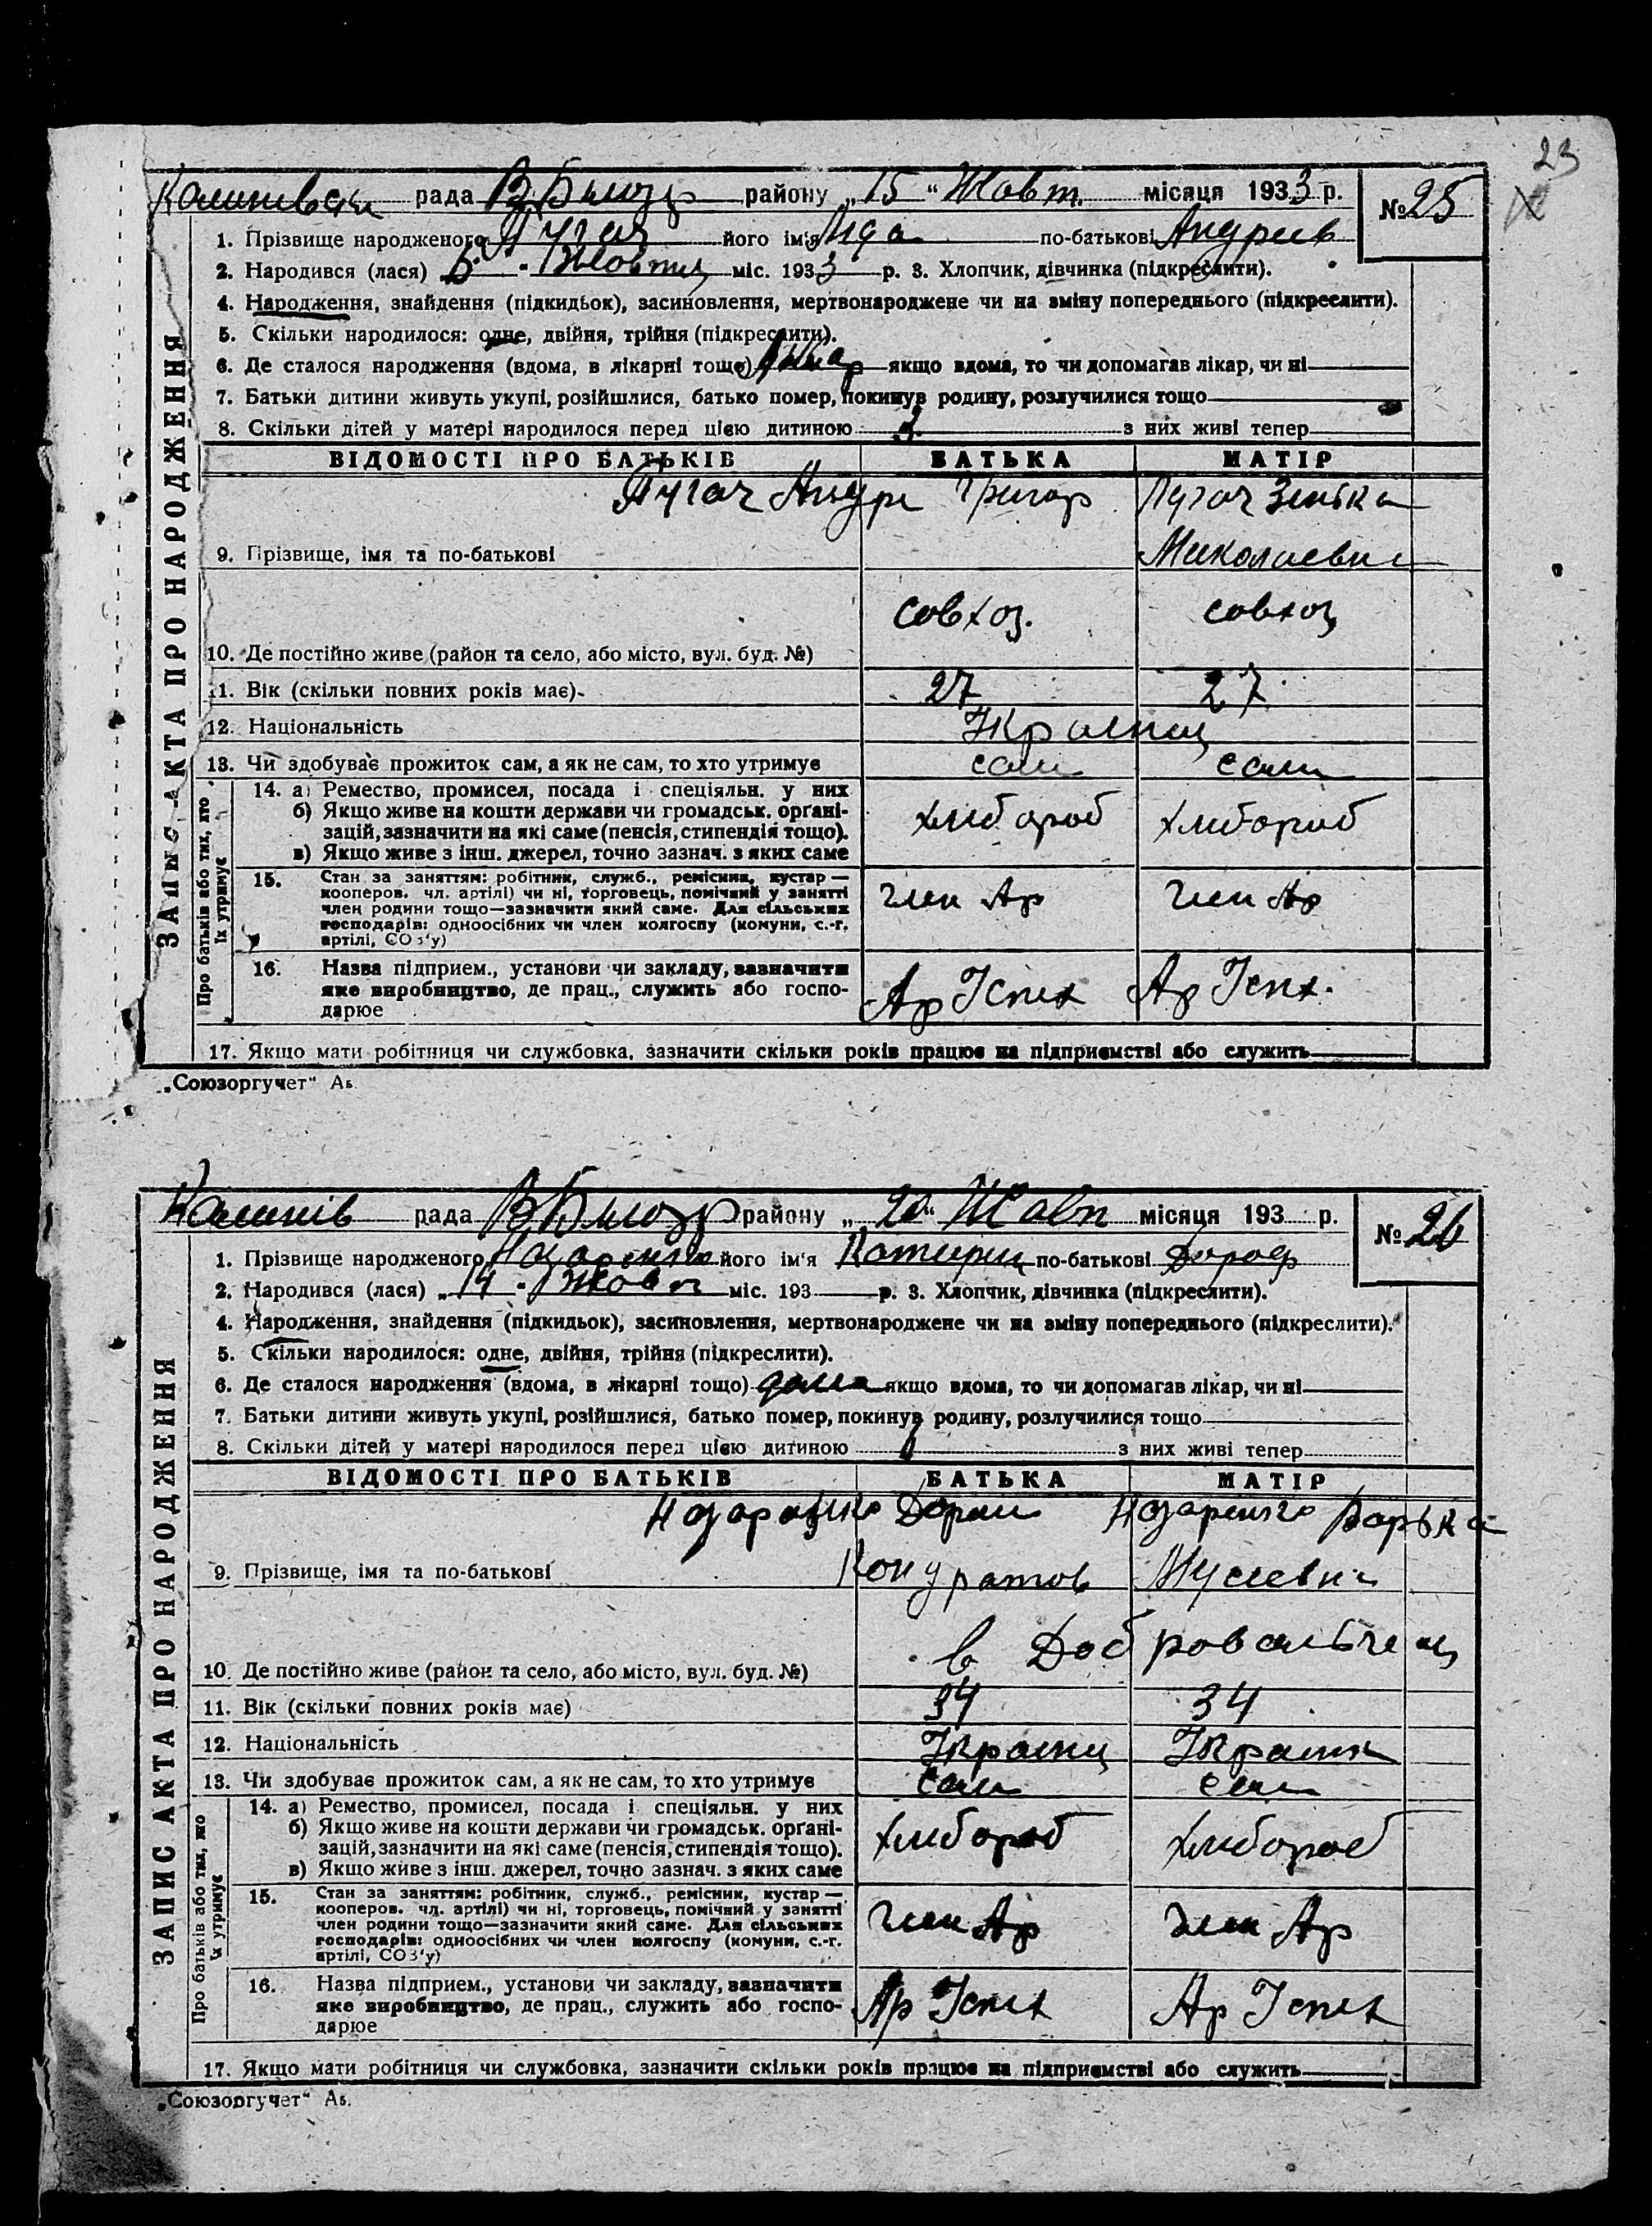 23
рада В Білозер району „ 15 “ Жовт. місяця 1933 р.
№ 25
1. Прізвище народженого Пугач його ім'я Ліда по-батькові Андріев
2. Народився (лася) міс. 1933 р. 3. Хлопчик, дівчинка (підкреслити).
4. Народження, знайдення (підкидьок), засиновлення, мертвонароджене чи на зміну попереднього (підкреслити).
5. Скільки народилося: одне, двійня, трійня (підкреслити).
6. Де сталося народження (вдома, в лікарні тощо) якщо вдома, то чи допомагав лікар, чи ні
7. Батьки дитини живуть укупі, розійшлися, батько помер, покинув родину, розлучилися тощо
8. Скільки дітей у матері народилося перед цією дитиною з них живі тепер
ВІДОМОСТІ ПРО БАТЬКІВ БАТЬКА МАТІР
Пугач Андре Григор Пугач Зінька
9. Прізвище, імя та по-батькові Миколаевна
совхоз. совхоз
10. Де постійно живе (район та село, або місто, вул. буд. №)
11. Вік (скільки повних років має) 27 27
12. Національність Украінец
13. Чи здобуває прожиток сам, а як не сам, то хто утримує сам сам
14. а) Ремество, промисел, посада і спеціяльн. у них
б) Якщо живе на кошти держави чи громадськ. органі-
зацій, зазначити на які саме (пенсія, стипендія тощо). хлибороб хлибороб
в) Якщо живе з інш. джерел, точно зазнач. з яких саме
15. Стан за заняттям: робітник, служб., ремісник, кустар —
кооперов. чл. артілі) чи ні, торговець, помічний у занятті
член родини тощо—зазначити який саме. Для сільських член Ар член Ар
господарів: одноосібних чи член колгоспу (комуни, с.-г.
артілі, СОЗ'у)
16. Назва підприєм., установи чи закладу, зазначити
яке виробництво, де прац., служить або госпо- Ар Успех Ар Успх.
дарює
17. Якщо мати робітниця чи службовка, зазначити скільки років працює на підприємстві або служить
ЗАПИС АКТА ПРО НАРОДЖЕННЯ
Про батьків або тих, хто
їх утримує
„Союзоргучет“ Ав
Калинів рада В Білозер району „ 20 “ Жовт місяця 193 р.
№ 26
1. Прізвище народженого Назаренко його ім'я Катерин по-батькові Дороф
2. Народився (лася) „ 14 “ Жовт міс. 193 р. 3. Хлопчик, дівчинка (підкреслити).
4. Народження, знайдення (підкидьок), засиновлення, мертвонароджене чи на зміну попереднього (підкреслити).
5. Скільки народилося: одне, двійня, трійня (підкреслити).
6. Де сталося народження (вдома, в лікарні тощо) дома якщо вдома, то чи допомагав лікар, чи ні
7. Батьки дитини живуть укупі, розійшлися, батько помер, покинув родину, розлучилися тощо
8. Скільки дітей у матері народилося перед цією дитиною з них живі тепер
ВІДОМОСТІ ПРО БАТЬКІВ БАТЬКА МАТІР
Назаренко Назаренко Варька
9. Прізвище, імя та по-батькові Кондратов Мусіевна
в
10. Де постійно живе (район та село, або місто, вул. буд. №)
11. Вік (скільки повних років має) 34 34
12. Національність Украінец Украінк
13. Чи здобуває прожиток сам, а як не сам, то хто утримує сам сам
14. а) Ремество, промисел, посада і спеціяльн. у них
б) Якщо живе на кошти держави чи громадськ. органі-
зацій, зазначити на які саме (пенсія, стипендія тощо). хлибороб хлибороб
в) Якщо живе з інш. джерел, точно зазнач. з яких саме
15. Стан за заняттям: робітник, служб., ремісник, кустар —
кооперов. чл. артілі) чи ні, торговець, помічний у занятті
член родини тощо—зазначити який саме. Для сільських член Ар член Ар
господарів: одноосібних чи член колгоспу (комуни, с.-г.
артілі, СОЗ'у)
16. Назва підприєм., установи чи закладу, зазначити
яке виробництво, де прац., служить або госпо- Ар Успех Ар Успех
дарює
17. Якщо мати робітниця чи службовка, зазначити скільки років працює на підприємстві або служить
ЗАПИС АКТА ПРО НАРОДЖЕННЯ
Про батьків або тих, хто
їх утримує
„Союзоргучет“ Ав.